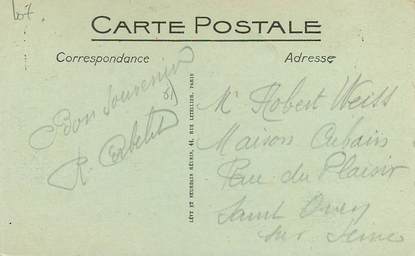 lot.
CARTE POSTALE
Correspondance
Adresse
Bon Souvenir
R. Corbelet
LÉVY ET NEURDEIN RÉUNIS, 44, RUE LETELLIER, PARIS
Mr Robert Weiss
Maison Cubain
Rue du Plaisir
Saint Ouen
sur Seine